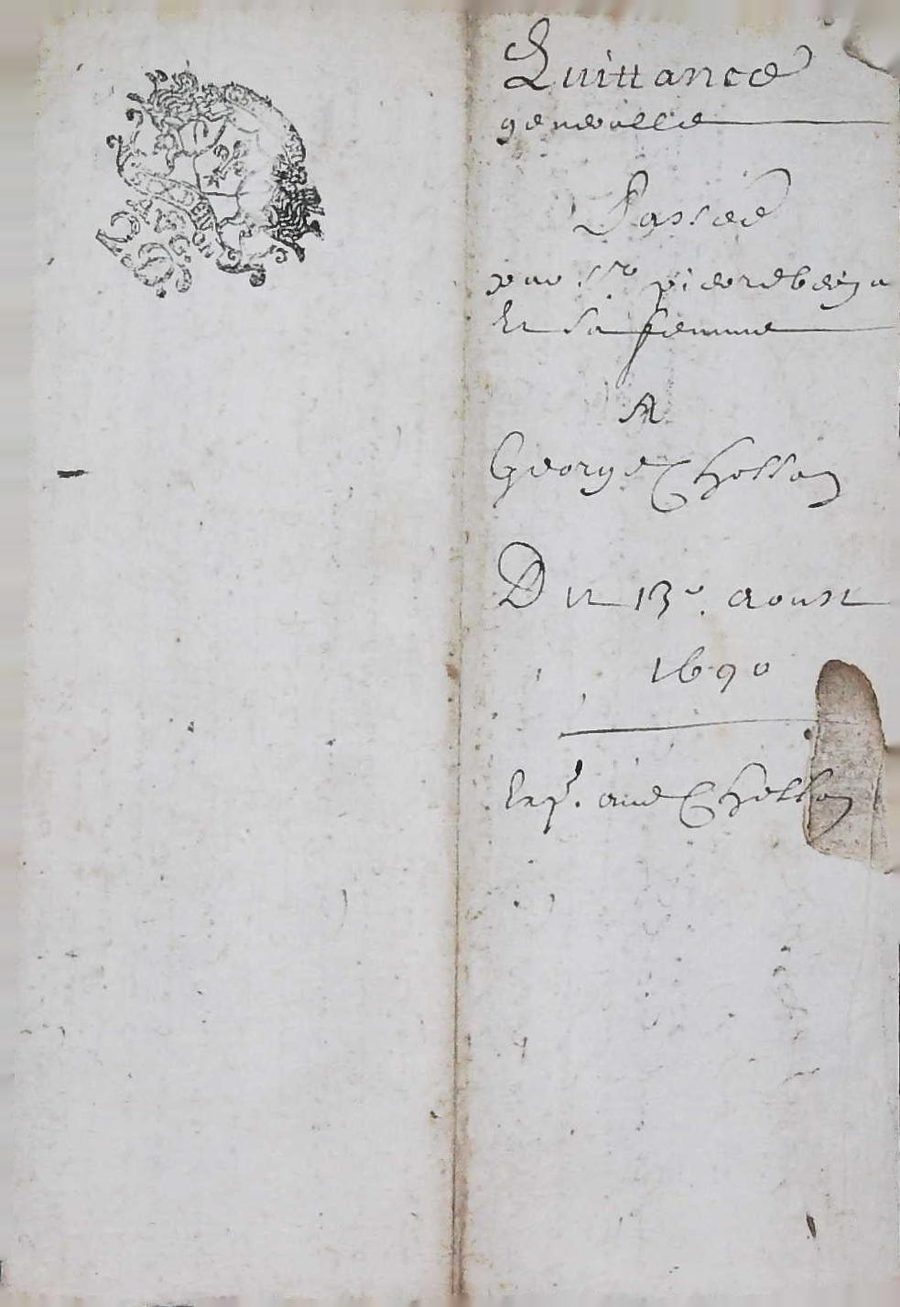 Quittance
generalle
Passée
par Sr pierre
Et Sa femme
A
George Chollon
Du 13e. Aoust
1690
Exp. Chollon